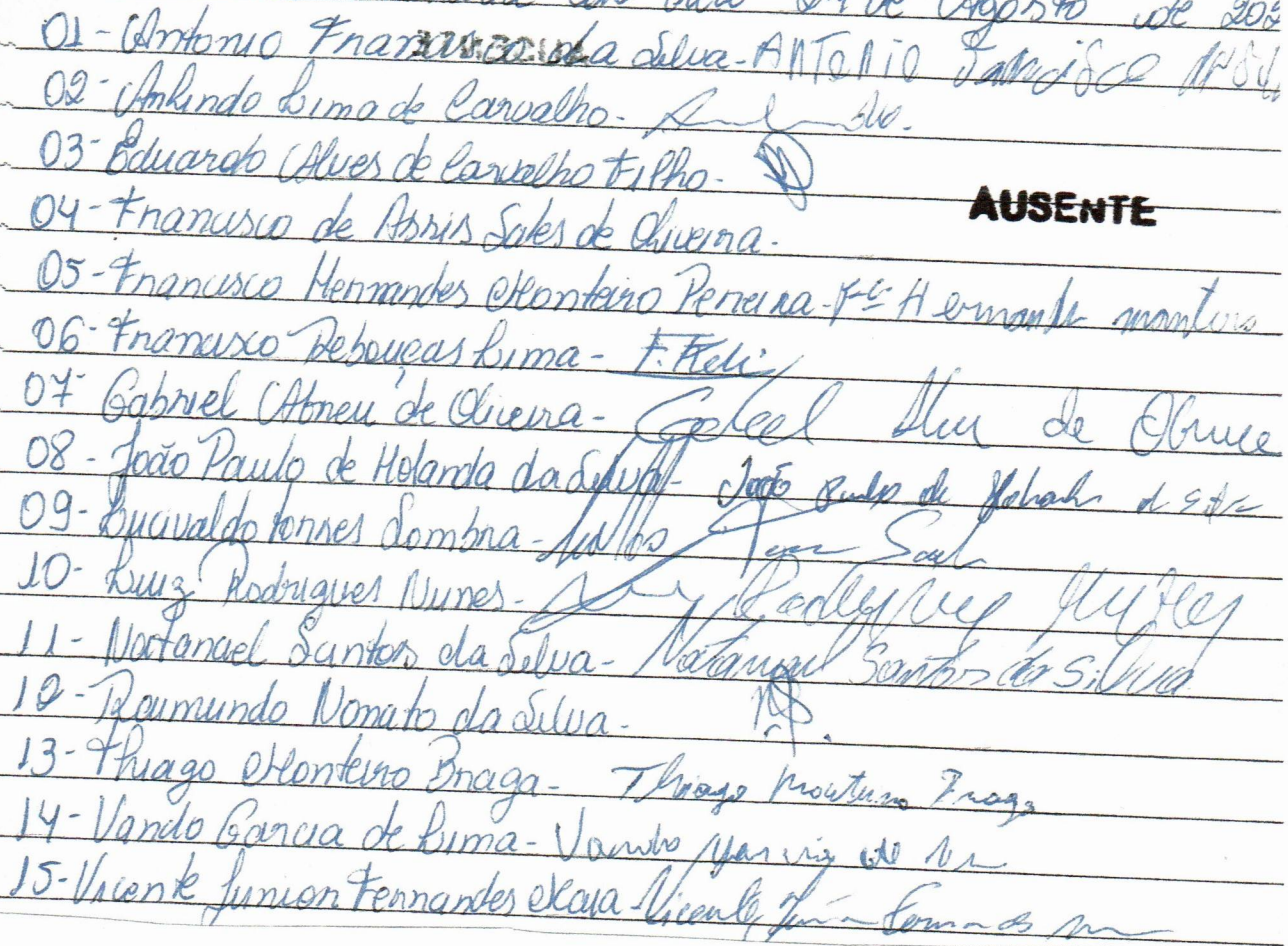 de Agosto de 202
01- Antonio Francisco da Silva - ANTONIO
02- Arlindo Lima de Carvalho -
03- Eduardo Alves de Carvalho Filho -
AUSENTE
04- Francisco de Assis Sales de Oliveira -
05- Francisco Hernandes Monteiro Pereira - Fco Hernande monteiro
06- Francisco Rebouças Lima -
07- Gabriel Abreu de Oliveira - de
08- João Paulo de Holanda da Silva - João Paulo de Holanda
09- Lucivaldo Torres Sombra -
10- Luiz Rodrigues Nunes -
11- Natanael Santos da Silva - Natanael Santos da Silva
12- Raimundo Nonato da Silva -
13- Thiago Monteiro Braga - Thiago Monteiro Braga
14- Vando Garcia de Lima - Vando
15- Vicente Junior Fernandes Maia - Vicente